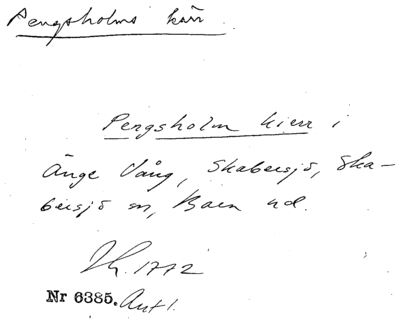 Pengsholms kärr
Pergsholm kierr i
Änge Vång, Skabersjö, Ska-
bersjö sn, Bara hd.
1772
Nr 6385. Ant 1.